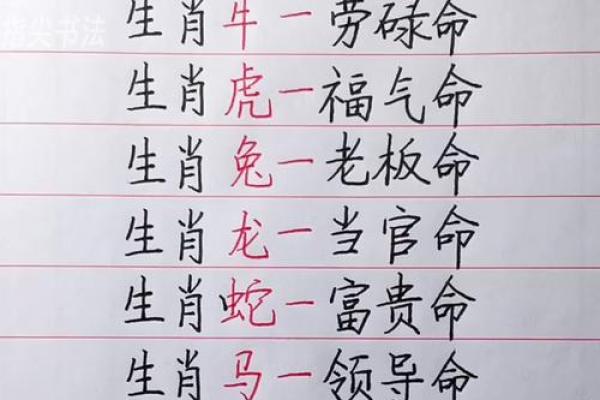 生肖牛一劳碌命
指尖书法
生肖虎一福气命
生肖兔一老板命
生肖龙一当官命
生肖蛇一富贵命
生肖马一领导命